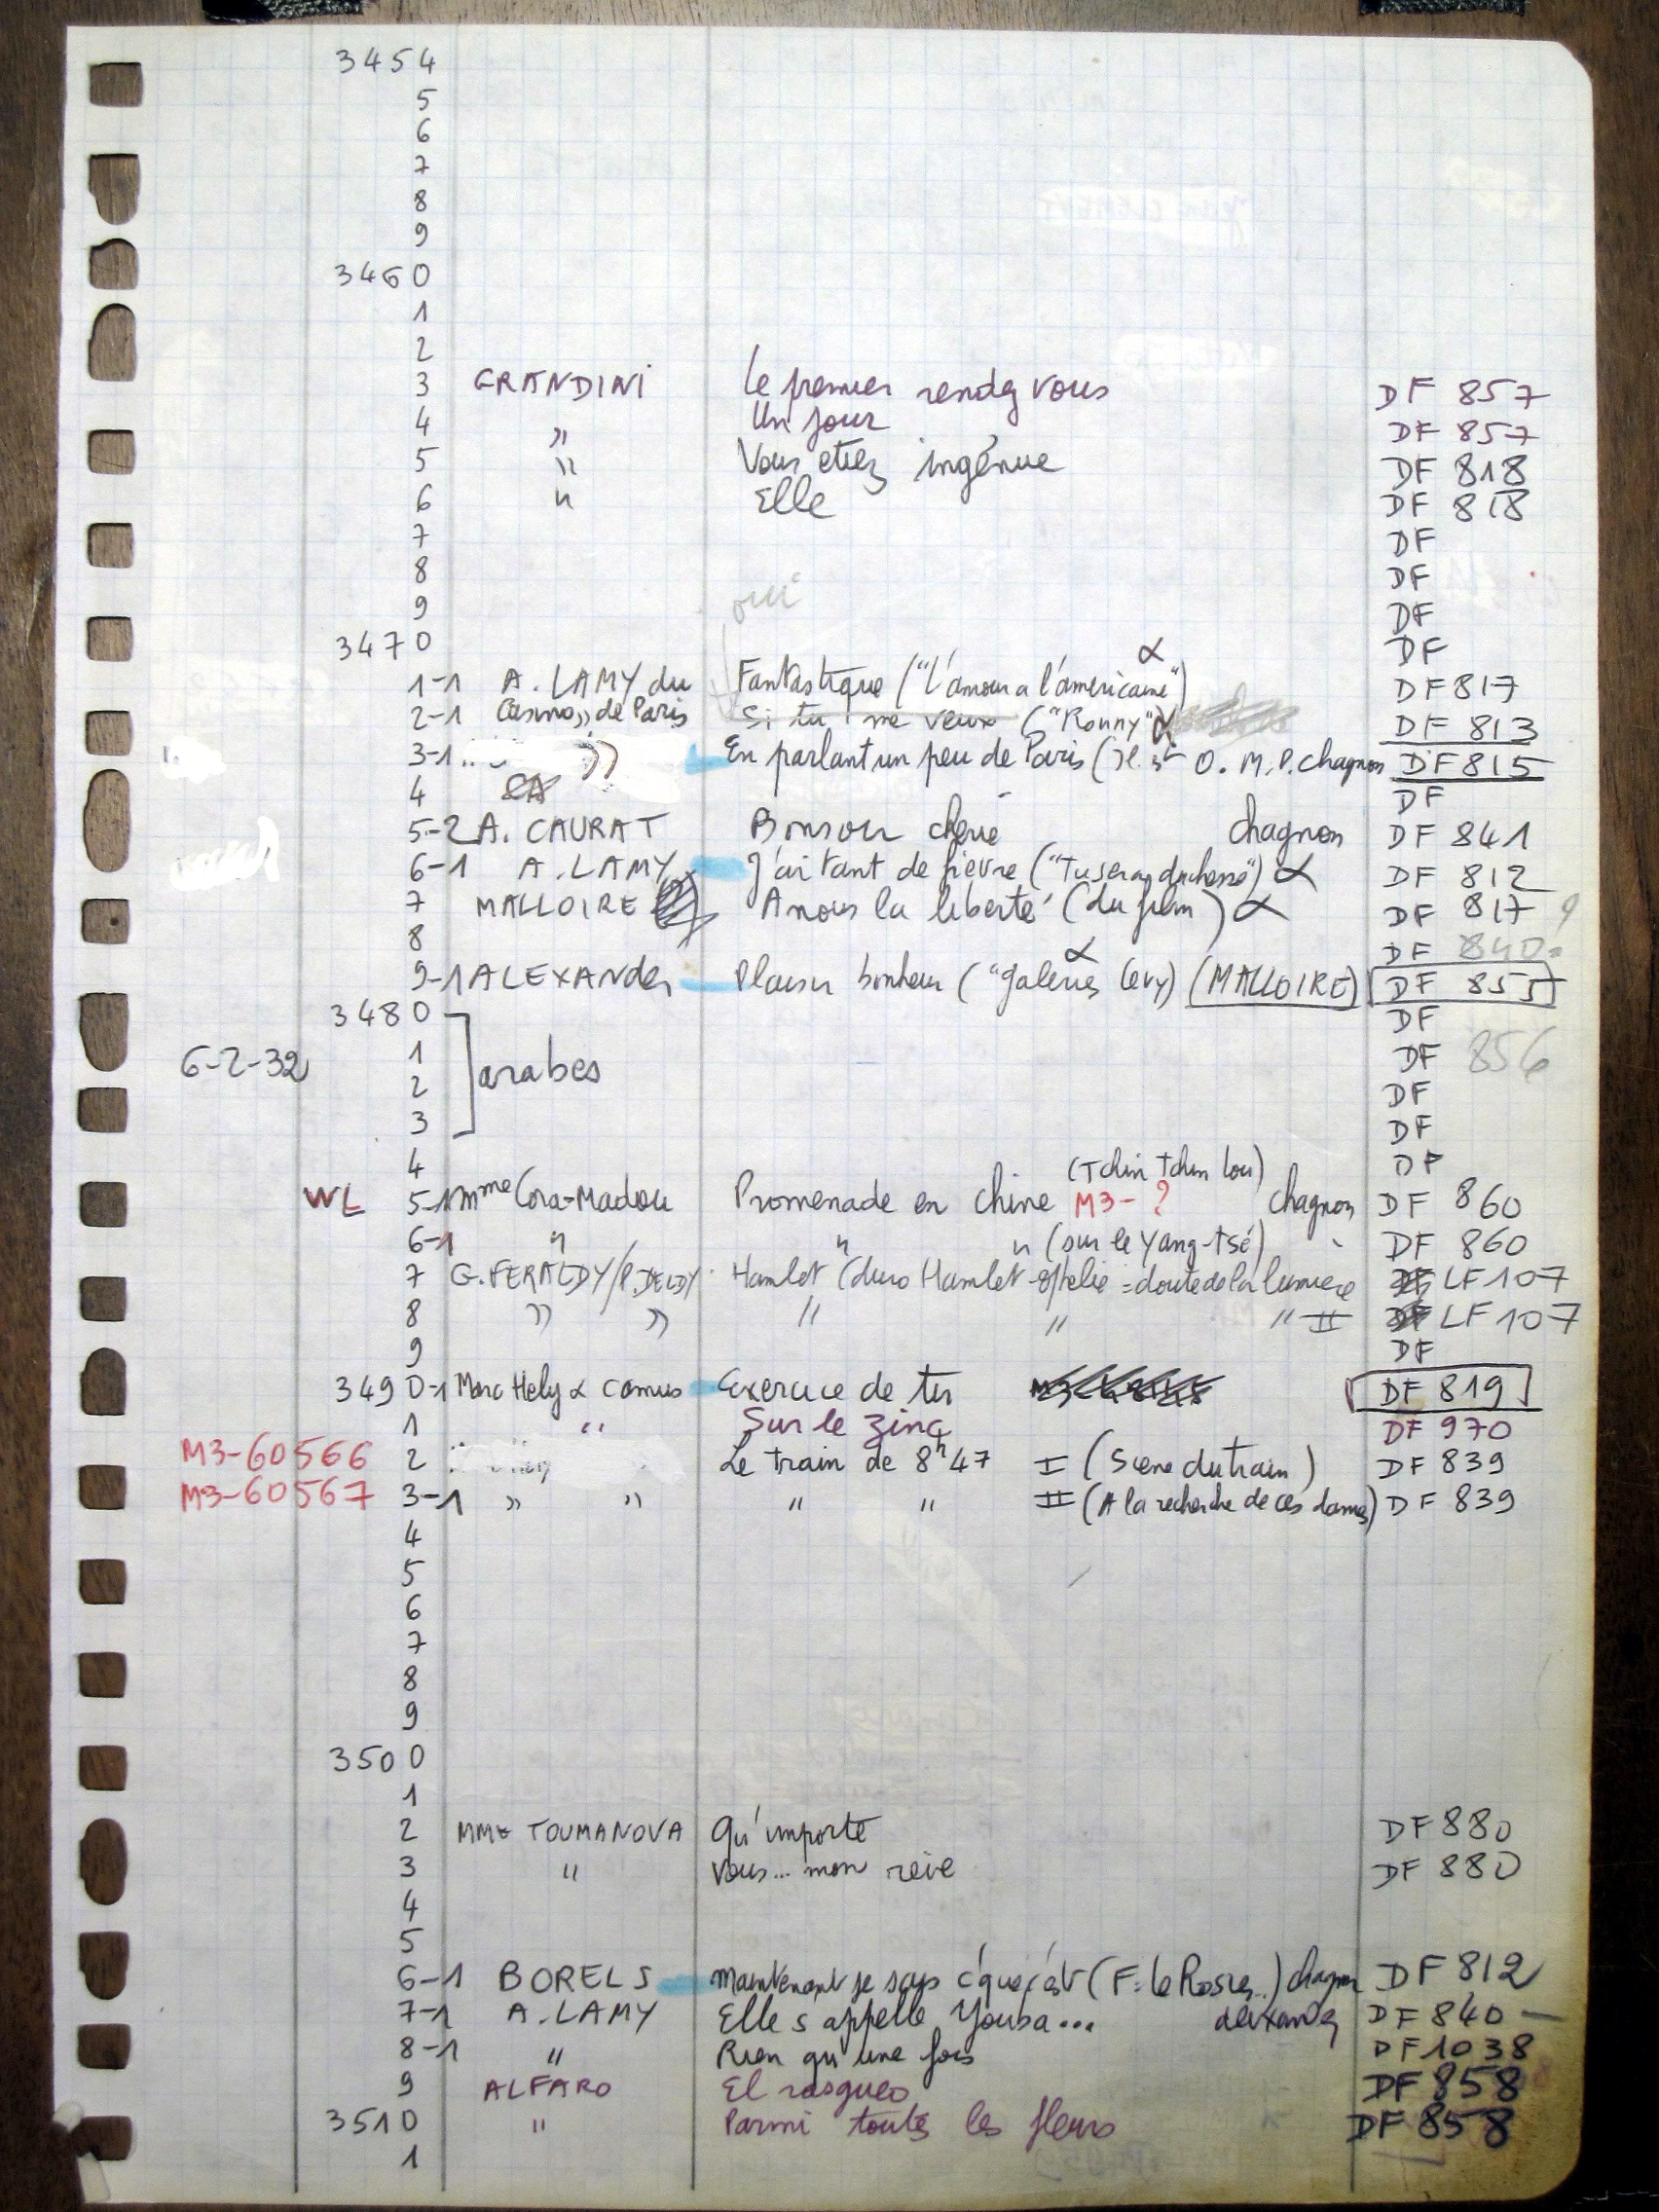 3454
5
6
7
8
9
3460
1
2
3 GRANDINI Le premier rendez vous DF 857
4 " Un jour DF 857
5 " Vous etiez ingénue DF 818
6 " Elle DF 818
7 DF
8 DF
9 DF
oui
3470 DF
1-1 A. LAMY du Fantastique ("L'amour a l'américaine") α DF 817
2-1 Casino " de Paris Si tu me veux ("Ronny") α DF 813
3-1 " En parlant un peu de Paris (Il est O. M. P. chagnon DF 815
4 DF
5-2 A. CAURAT Bonsoir chérie chagnon DF 841
6-1 A. LAMY J'ai tant de fièvre ("Tu seras duchesse") α DF 812
7 MALLOIRE A nous la liberté (du film) α DF 817
8 DF 840?
9-1 ALEXANder Plaisir bonheur ("Galeries Levy) α (MALLOIRE) DF 855
3480 DF
6-2-32 1 arabes DF 856
2 DF
3 DF
4 DF
(Tchin tchin lou)
WL 5-1 Mme Cora-Madou Promenade en chine M3-? chagnon DF 860
6-1 " " " (sur le Yang-tsé) DF 860
7 G. FERALDY/P. DELDY Hamlet (duo Hamlet-Ophelie = doute de la lumiere LF 107
8 " " " " " II LF 107
9 DF
3490-1 Marc Hely & Camus Exercice de tir DF 819
1 " Sur le Zinc DF 970
M3-60566 2 Le train de 8h47 I (Scene du train) DF 839
M3-60567 3-1 " " " " II (A la recherche de ces dames) DF 839
4
5
6
7
8
9
3500
1
2 MME TOUMANOVA Qu'importe DF 880
3 " Vous... mon reve DF 880
4
5
6-1 BORELS Maintenant je says c'que c'est (F: le Rosier..) chagnon DF 812
7-1 A. LAMY Elle s appelle Youba... DF 840 —
8-1 " Rien qu'une fois DF 1038
9 ALFARO El rasgueo DF 858
3510 " Parmi toutes les fleurs DF 858
1